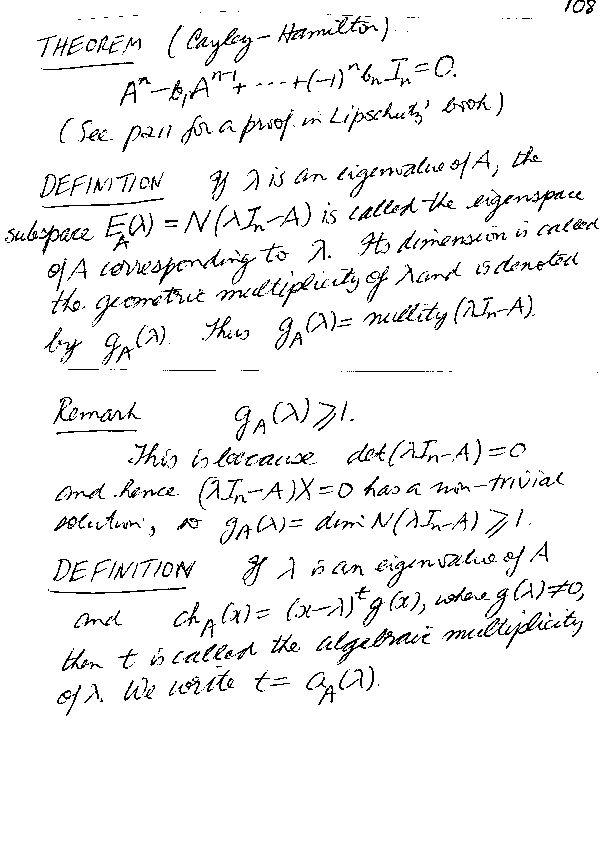 108
THEOREM (Cayley-Hamilton)
Aⁿ - b₁Aⁿ⁻¹ + ··· + (-1)ⁿ bₙ Iₙ = 0.
(See p211 for a proof in Lipschutz' book)
DEFINITION If λ is an eigenvalue of A, the
subspace E_A(λ) = N(λIₙ-A) is called the eigenspace
of A corresponding to λ. Its dimension is called
the geometric multiplicity of λ and is denoted
by g_A(λ). Thus g_A(λ) = nullity (λIₙ-A).
Remark g_A(λ) ⩾ 1.
This is because det(λIₙ-A) = 0
and hence (λIₙ-A)X = 0 has a non-trivial
solution, so g_A(λ) = dim N(λIₙ-A) ⩾ 1.
DEFINITION If λ is an eigenvalue of A
and ch_A(x) = (x-λ)ᵗ g(x), where g(λ) ≠ 0,
then t is called the algebraic multiplicity
of λ. We write t = a_A(λ).